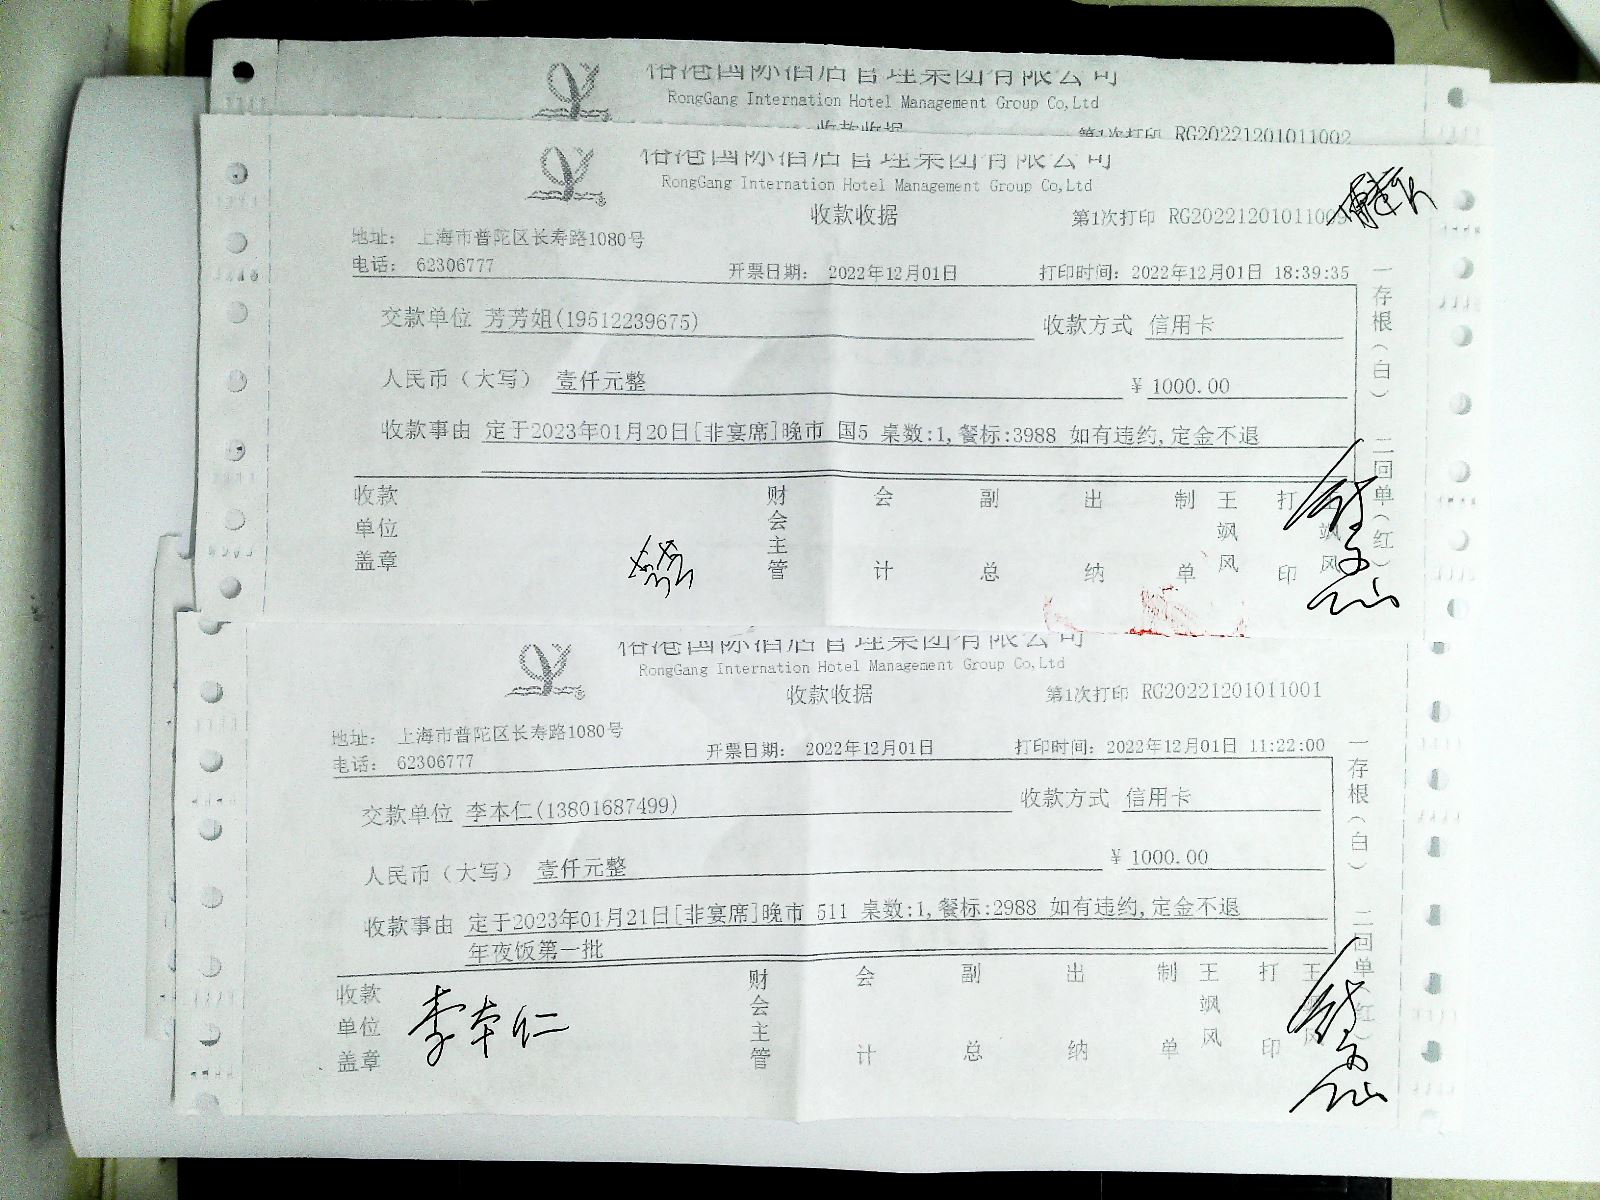 国际酒店管理集团有限公司
RongGang Internation Hotel Management Group Co,Ltd
收款收据
第1次打印 RG20221201011002
国际酒店管理集团有限公司
RongGang Internation Hotel Management Group Co,Ltd
收款收据 第1次打印
地址: 上海市普陀区长寿路1080号
电话: 62306777 开票日期: 2022年12月01日 打印时间: 2022年12月01日 18:39:35
交款单位 芳芳姐(19512239675) 收款方式 信用卡
人民币(大写) 壹仟元整 ¥ 1000.00
收款事由 定于2023年01月20日[非宴席]晚市 国5 桌数:1,餐标:3988 如有违约,定金不退
收款单位盖章 财会主管 会计 副总 出纳 制单 王飒风 打印
一存根(白) 二回单(红)
国际酒店管理集团有限公司
RongGang Internation Hotel Management Group Co,Ltd
收款收据 第1次打印 RG20221201011001
地址: 上海市普陀区长寿路1080号
电话: 62306777 开票日期: 2022年12月01日 打印时间: 2022年12月01日 11:22:00
交款单位 李本仁(13801687499) 收款方式 信用卡
人民币(大写) 壹仟元整 ¥ 1000.00
收款事由 定于2023年01月21日[非宴席]晚市 511 桌数:1,餐标:2988 如有违约,定金不退
年夜饭第一批
收款单位盖章 李本仁 财会主管 会计 副总 出纳 制单 王飒风 打印
一存根(白) 二回单(红